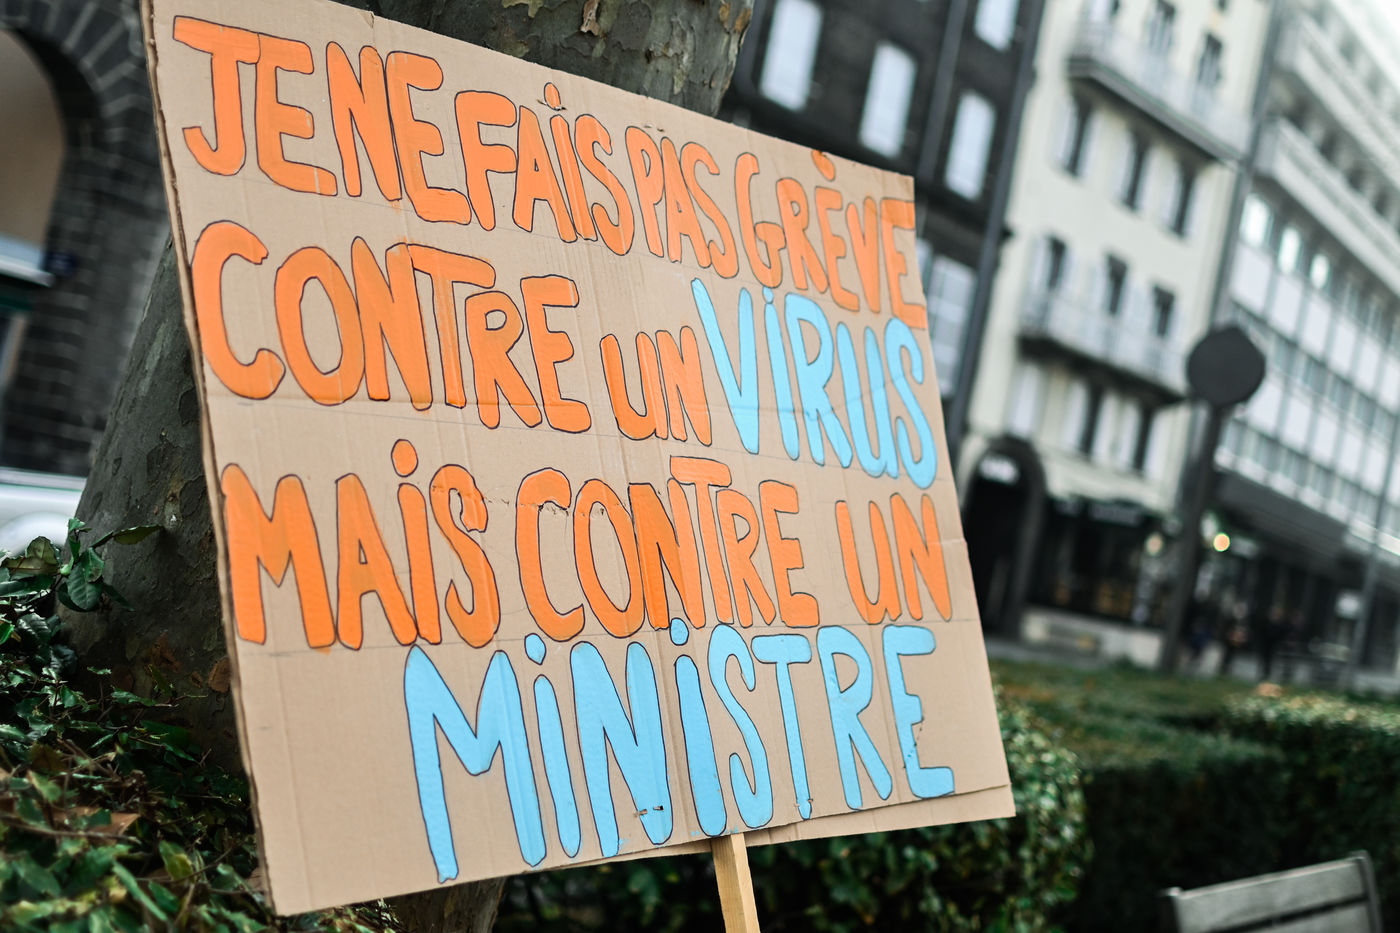 JE NE FAiS PAS GRÈVE
CONTRE UN ViRUS
MAiS CONTRE UN
MiNiSTRE